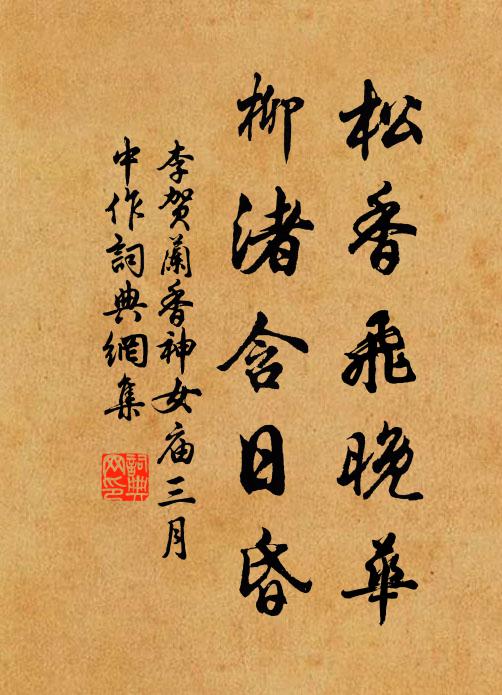 松香飛晚華
柳渚含日昏
李賀蘭香神女庙三月
中作詞典網集
詞典网印